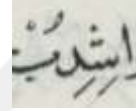 اشِدُبْ